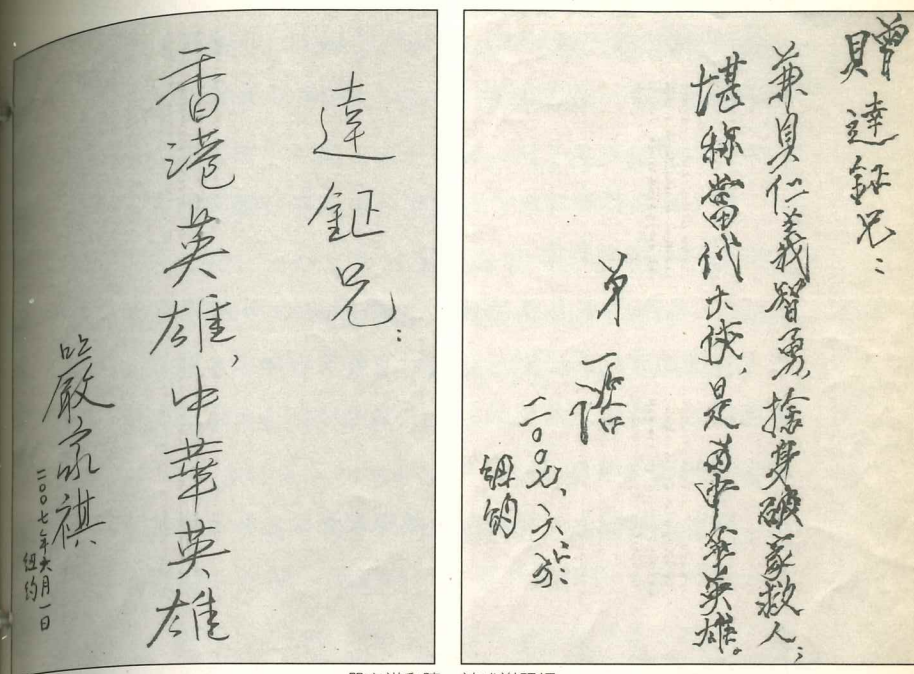 贈達鉦兄：
兼具仁義智勇，捨身破家救人；
堪称當代大俠，是為中華英雄。
弟 一諮
二〇〇七、六於
紐約
達鉦兄：
香港英雄，中華英雄
嚴家祺
二〇〇七年六月一日
紐約